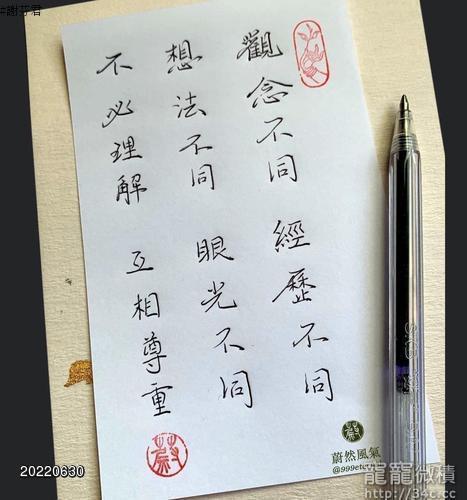 #謝芬君
觀念不同 經歷不同
想法不同 眼光不同
不必理解 互相尊重
蔚然風氣
20220630
龍龍微積
http://34c.cc